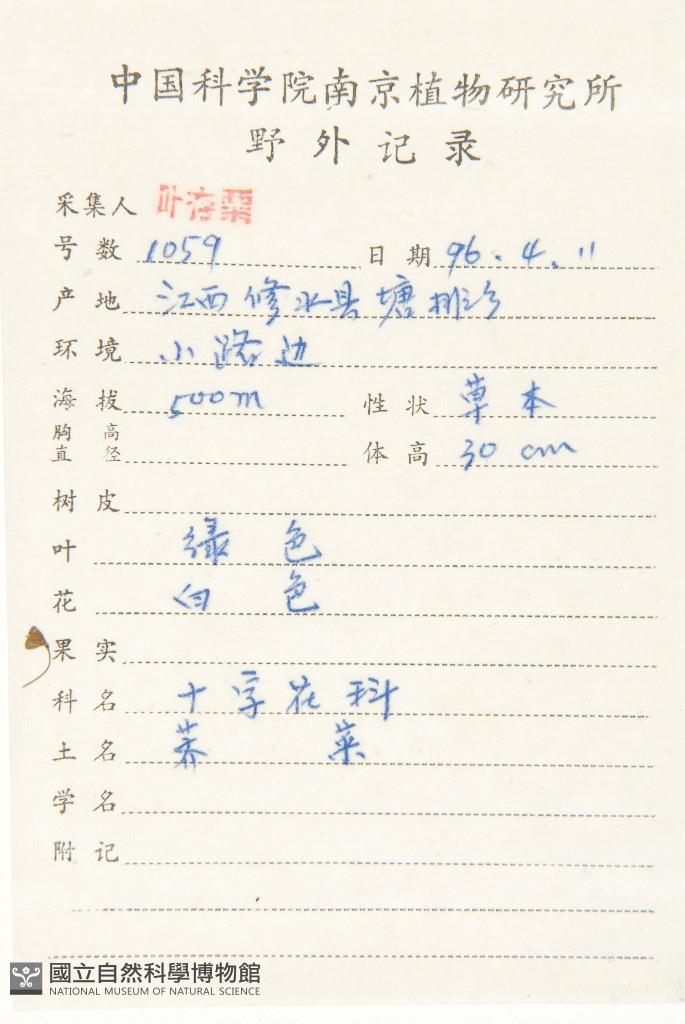 中国科学院南京植物研究所
野外记录
采集人 叶存粟
号数 1059 日期 96.4.11
产地 江西修水县塘排
环境 小路边
海拔 500m 性状 草本
胸高直径 体高 30cm
树皮
叶 绿色
花 白色
果实
科名 十字花科
土名 荠菜
学名
附记
國立自然科學博物館
NATIONAL MUSEUM OF NATURAL SCIENCE